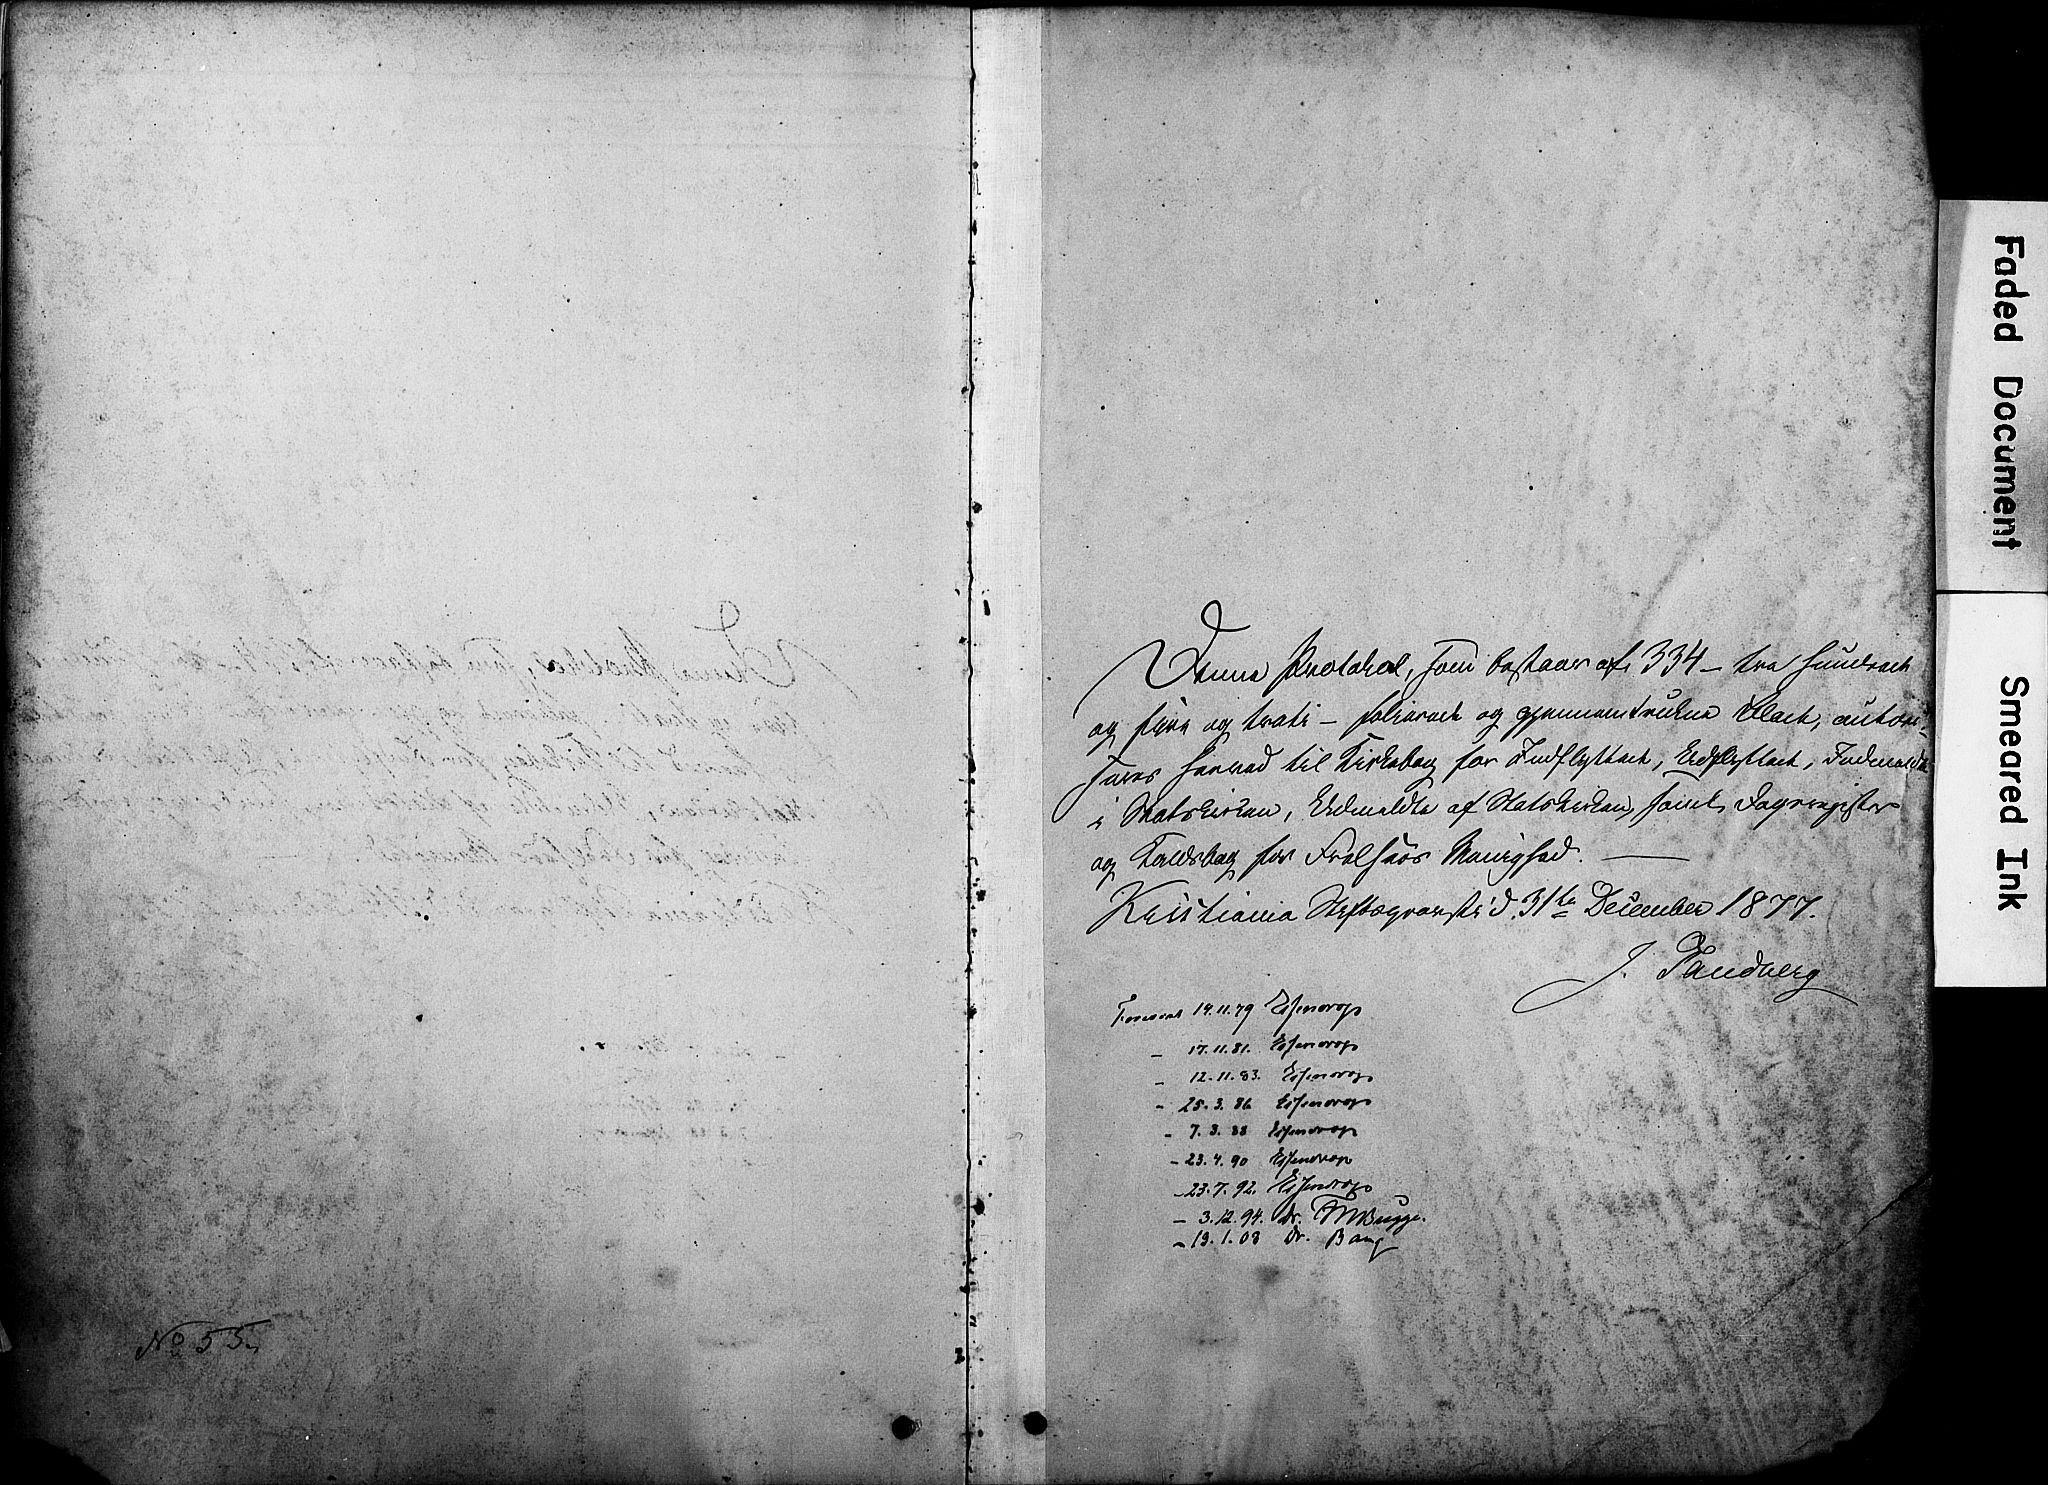 No 55.
Denne Protokol, som bestaar af 334 – tre hundrede
og fire og treti – folierede og gjennemtrukne Blade, autori-
seres herved til Kirkebog for Indflyttede, Udflyttede, Indmeldte
i Statskirken, Udmeldte af Statskirken, samt Dagregister
og Kaldsbog for Menighed. —
Kristiania Stiftsprovsti d. 31te December 1877.
J. Sandberg
Forevist 14.11.79 Essendrop
– 17.11.81. Essendrop
– 12.11.83. Essendrop
– 25.3.86 Essendrop
– 7.3.88 Essendrop
– 23.4.90 Essendrop
– 23.7.92. Essendrop
– 3.12.94. Dr. FWBugge.
– 13.1.08 Dr. Bang
Faded Document
Smeared Ink